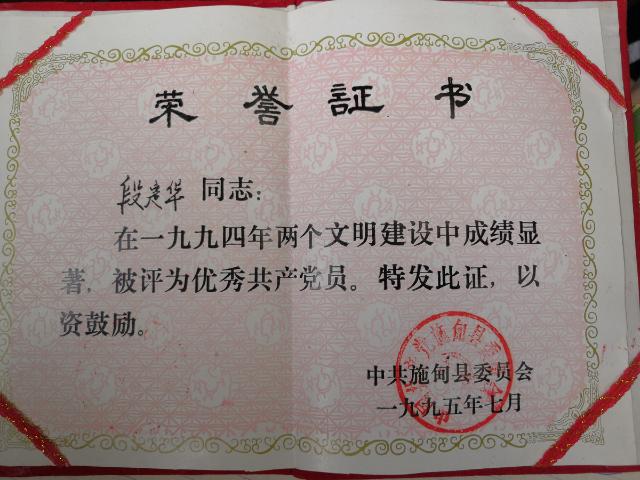 荣誉証书
段建华 同志:
在一九九四年两个文明建设中成绩显
著,被评为优秀共产党员。特发此证,以
资鼓励。
中共施甸县委员会
一九九五年七月